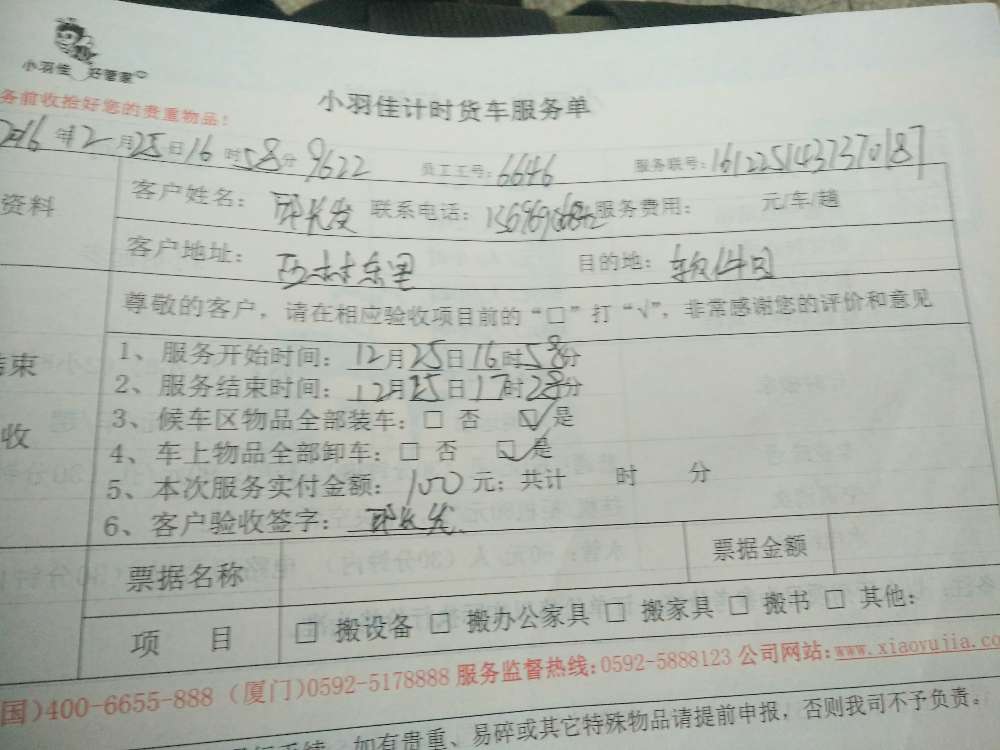 小羽佳 好管家
小羽佳计时货车服务单
务前收拾好您的贵重物品!
2016年12月25日16时58分 9622 员工工号:6646 服务联号:1612251437370187
资料 客户姓名: 联系电话: 服务费用: 元/车/趟
客户地址: 西村东里 目的地: 软件园
尊敬的客户,请在相应验收项目前的“□”打“√”,非常感谢您的评价和意见
结束 1、服务开始时间:12月25日16时58分
2、服务结束时间:12月25日17时28分
收 3、候车区物品全部装车:□ 否 ☑是
4、车上物品全部卸车:□ 否 ☑是
5、本次服务实付金额:100元;共计 时 分
6、客户验收签字:
票据名称 票据金额
项 目 □ 搬设备 □ 搬办公家具 □ 搬家具 □ 搬书 □ 其他:
国)400-6655-888 (厦门)0592-5178888 服务监督热线:0592-5888123 公司网站:www.xiaoyujia.co
如有贵重、易碎或其它特殊物品请提前申报,否则我司不予负责。